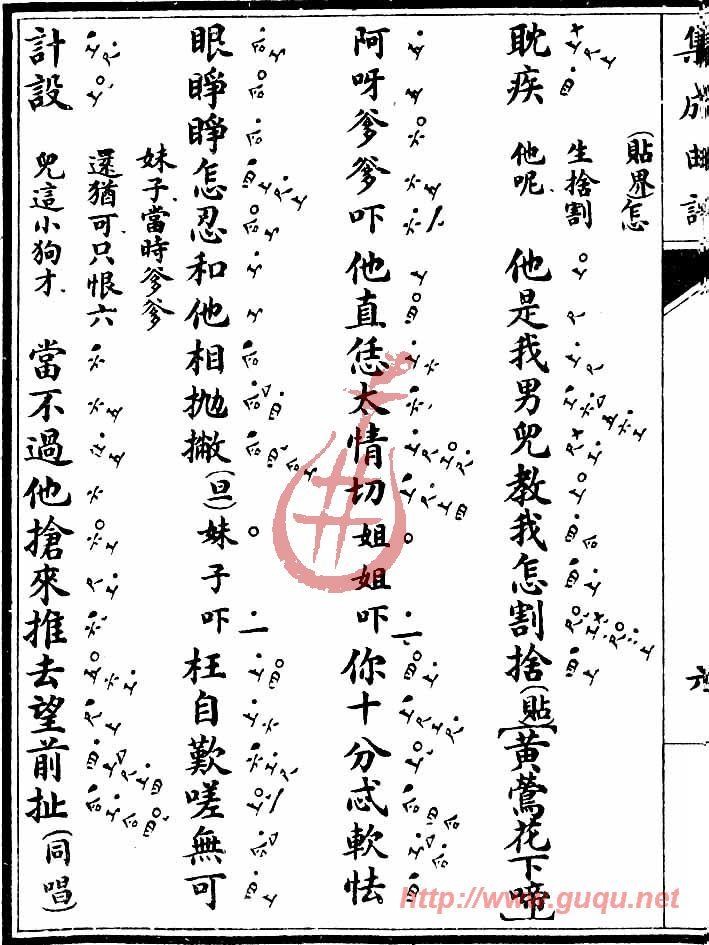 集成曲譜
六
耽疾
(貼界)怎
生捨割
他呢
他是我男兒教我怎割捨(貼)【黃鶯花下啼】
阿呀爹爹吓他直恁太情切姐姐吓你十分忒軟怯
眼睜睜怎忍和他相拋撇(旦)妹子吓枉自歎嗟無可
計設
妹子當時爹爹
還猶可只恨六
兒這小狗才
當不過他搶來推去望前扯(同唱)
http://www.guqu.net